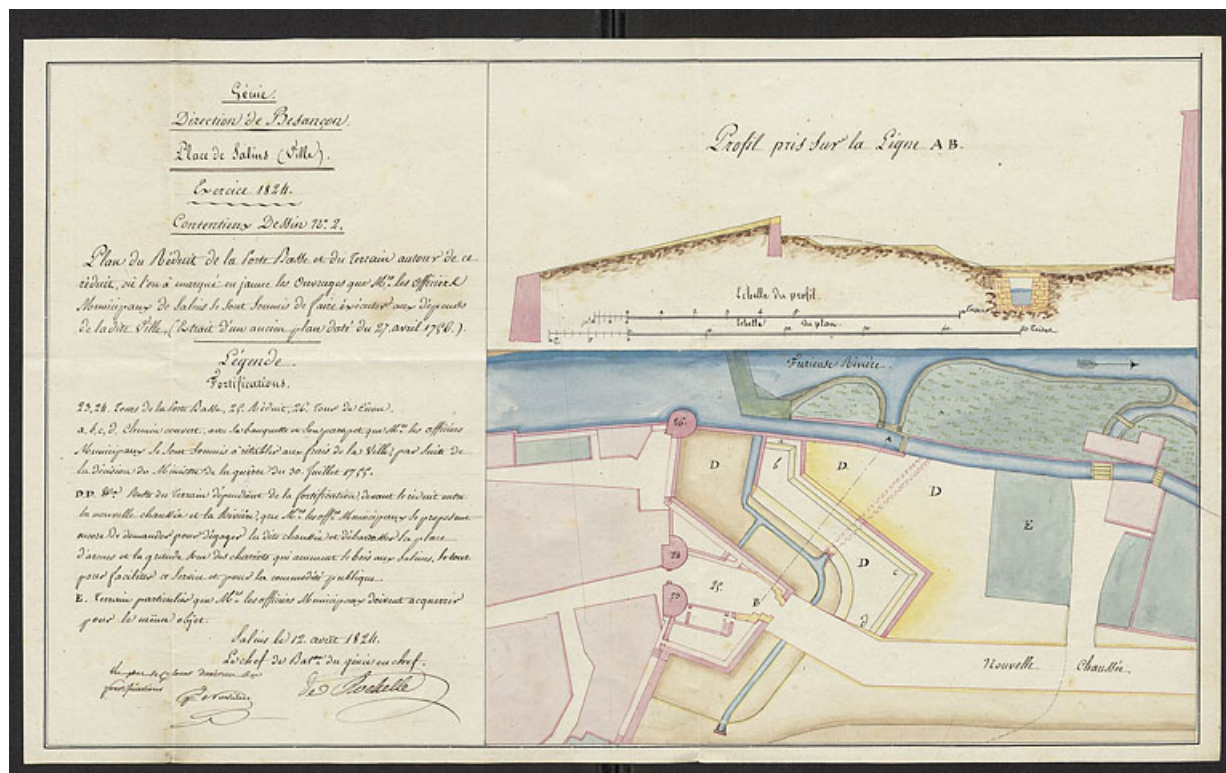 Génie.
Direction de Besançon.
Place de Salins (Ville).
Exercice 1824.
Contentieux Dessin N.° 2.
Plan du Réduit de la Porte Basse et du Terrain autour de ce
réduit, où l'on a marqué en jaune les Ouvrages que M.rs les Officiers
Municipaux de Salins se sont soumis de faire exécuter aux dépends
de la dite Ville. (Extrait d'un ancien plan daté du 27. avril 1756.)
Légende.
Fortifications.
23, 24. Tours de la Porte Basse, 25. Réduit, 26. Tour de
a, b, c, d, Chemin couvert, avec sa banquette et son parapet que M.rs les officiers
Municipaux se sont soumis à rétablir aux frais de la Ville, par suite de
la décision du Ministre de la guerre du 30. Juillet 1755.
D D. &.a Reste du Terrain dépendant de la fortification, devant le réduit entre
la nouvelle chaussée et la Rivière, que M.rs les off.rs Municipaux se proposent
encore de demander pour dégager la dite chaussée et débarrasser la place
d'armes et la grande rue des chariots qui amènent le bois aux Salines, le tout
pour faciliter ce service et pour la commodité publique.
E. Terrain particulier que M.rs les officiers Municipaux doivent acquérir
pour le même objet.
Salins le 12. avril 1824.
Le chef de Bat.on du génie en chef.
de Rochelle
fortifications
Profil pris sur la Ligne A B.
Echelle du profil.
Echelle du plan.
Furieuse Rivière.
26.
D
b
D.
A
D
E
24
25.
D
c
23
B
d
Nouvelle Chaussée.